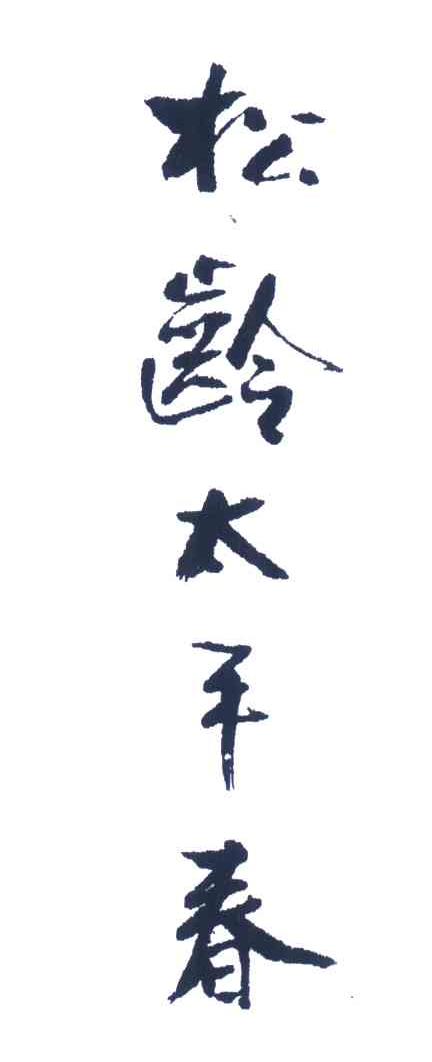 松齡太平春